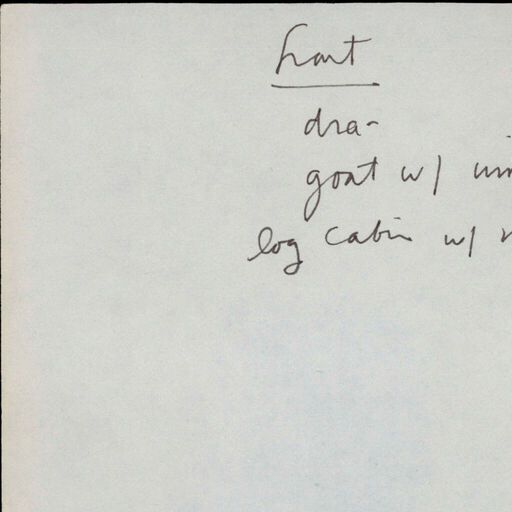 front
dra-
goat w/
log cabin w/